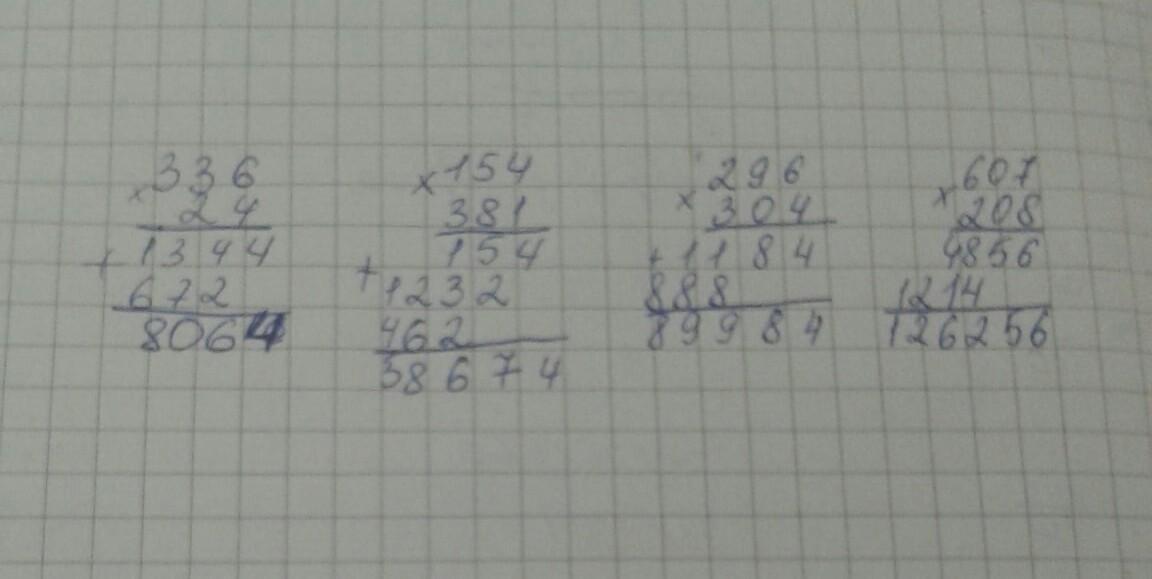 ×336
24
+1344
672
8064
×154
381
154
+1232
462
38674
×296
304
+1184
888
89984
×607
208
4856
1214
126256